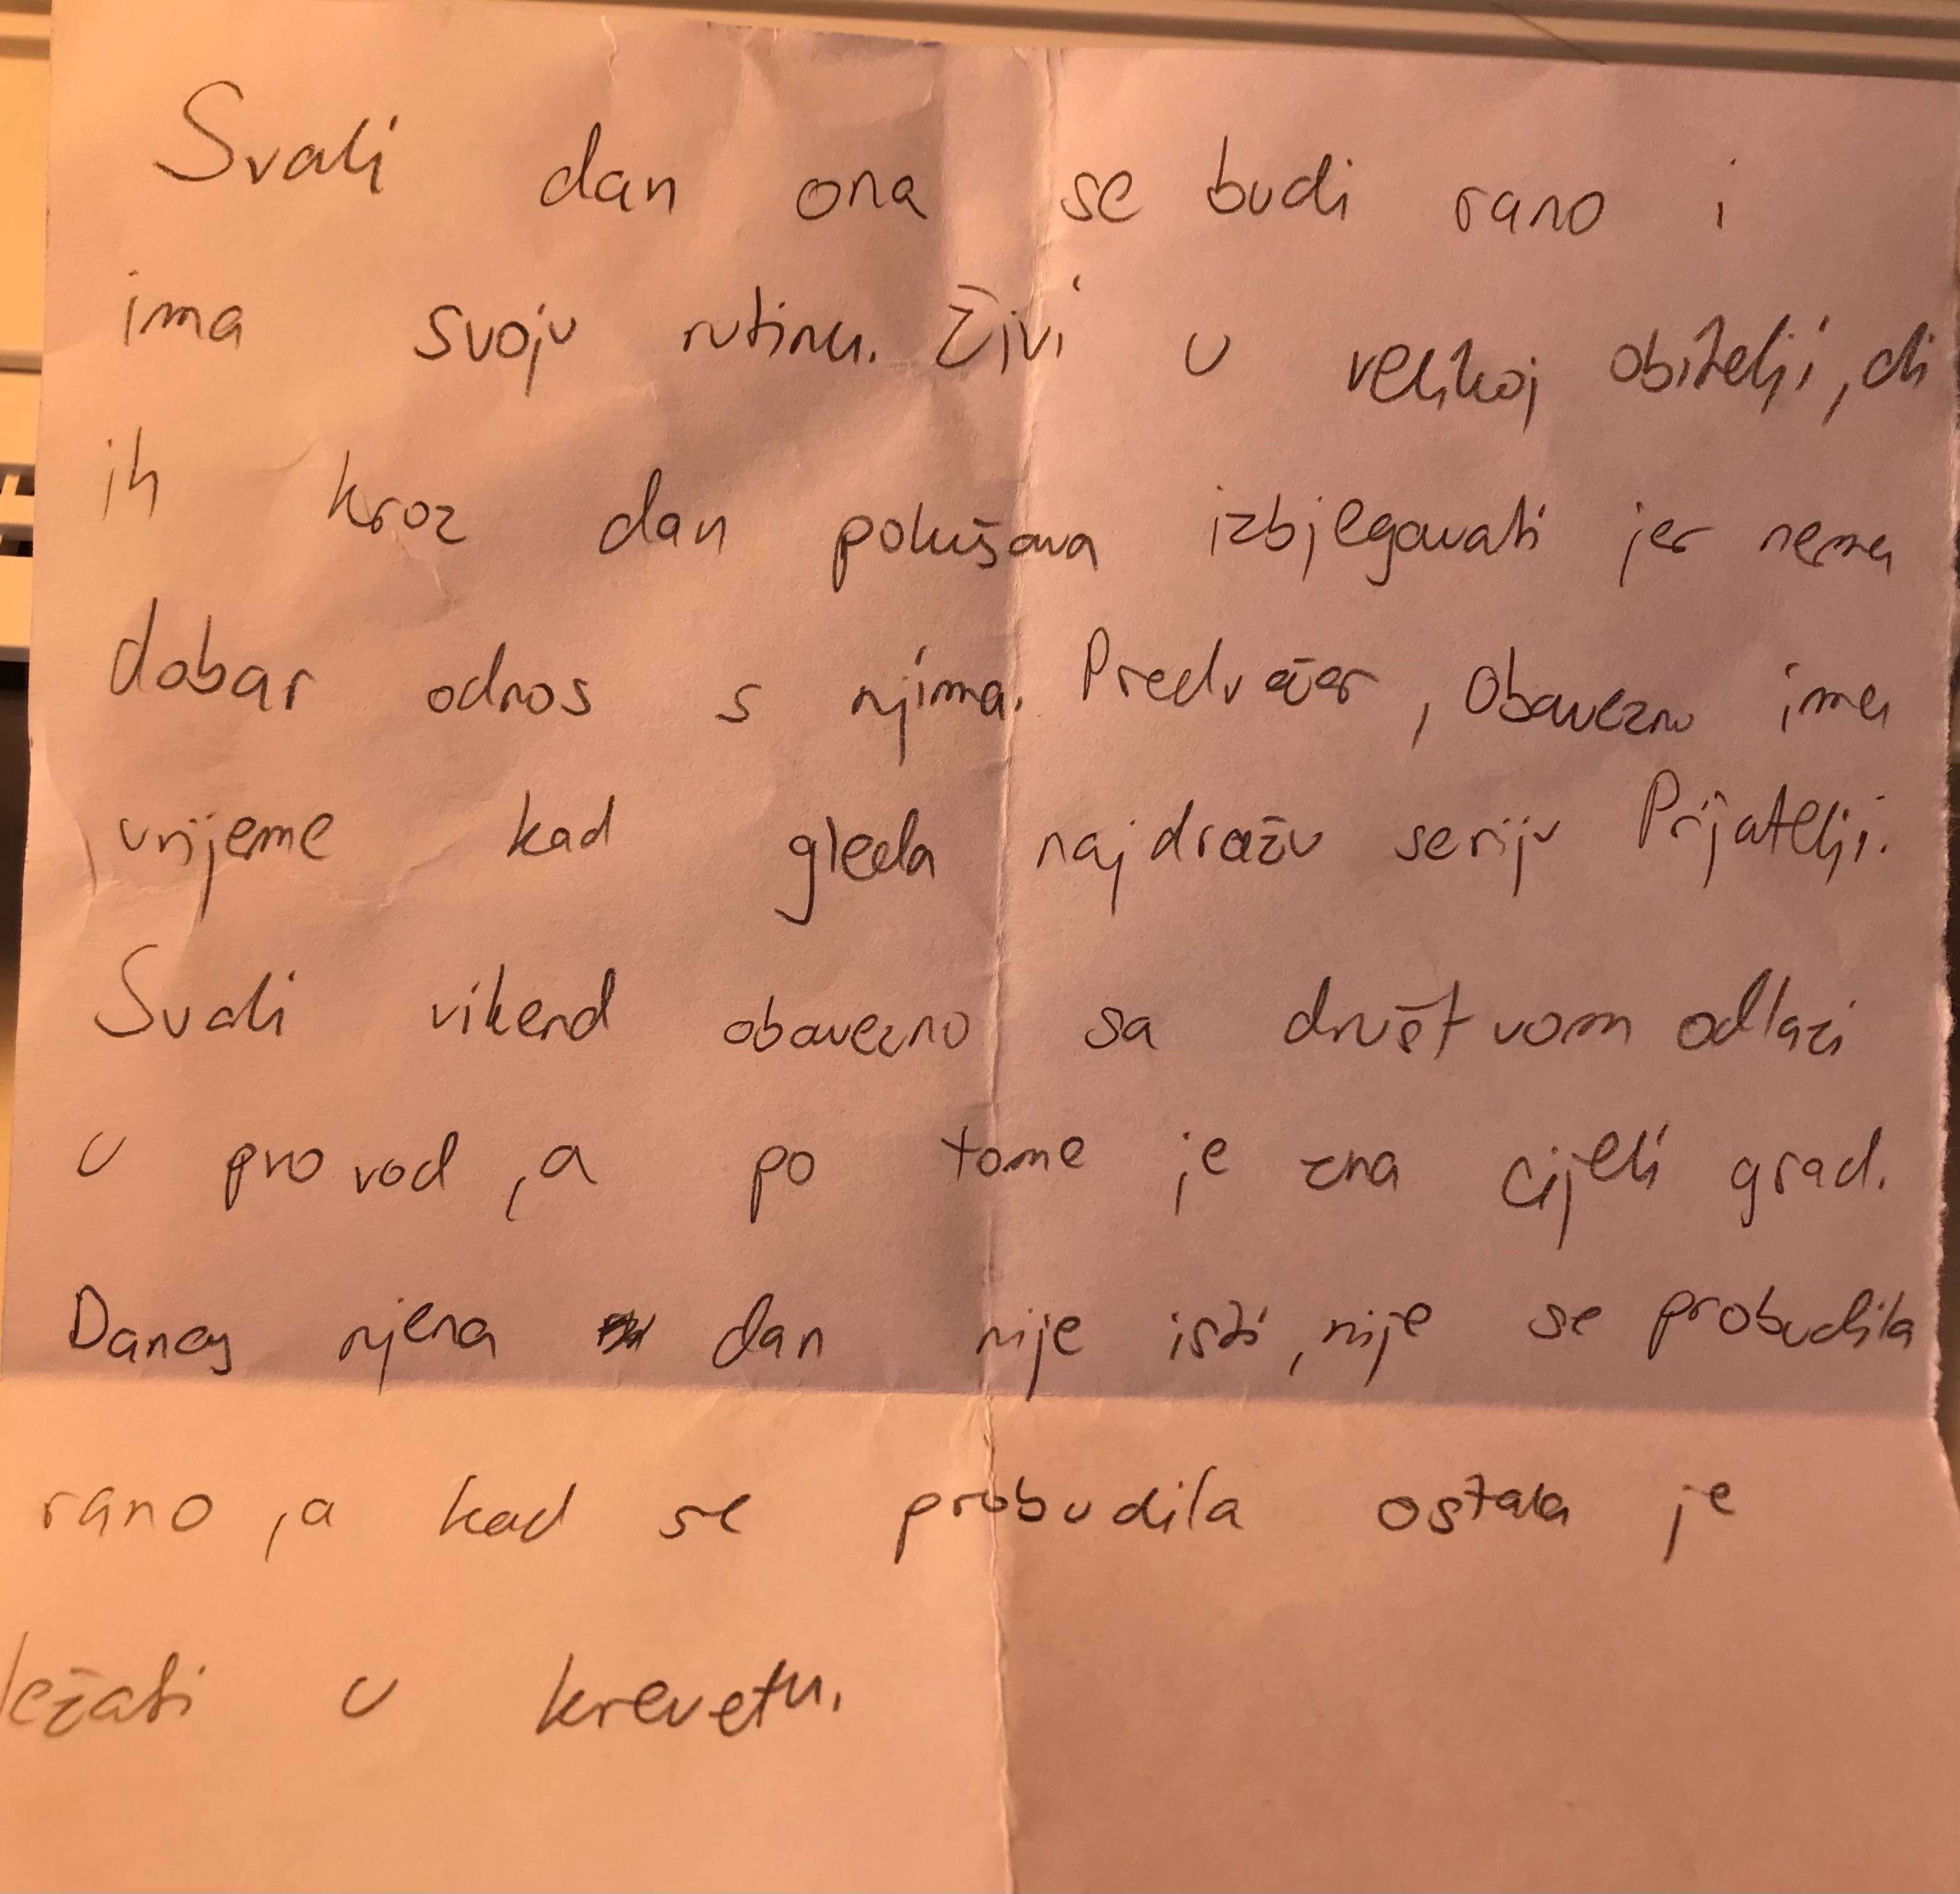 Svaki dan ona se budi rano i
ima svoju rutinu. Živi u velikoj obitelji, ali
ih kroz dan pokušava izbjegavati jer nema
dobar odnos s njima. Predvečer, obavezno ima
vrijeme kad gleda najdražu seriju Prijatelji.
Svaki vikend obavezno sa društvom odlazi
u provod, a po tome je zna cijeli grad.
Danas njena dan nije isti, nije se probudila
rano, a kad se probudila ostala je
ležati u krevetu.